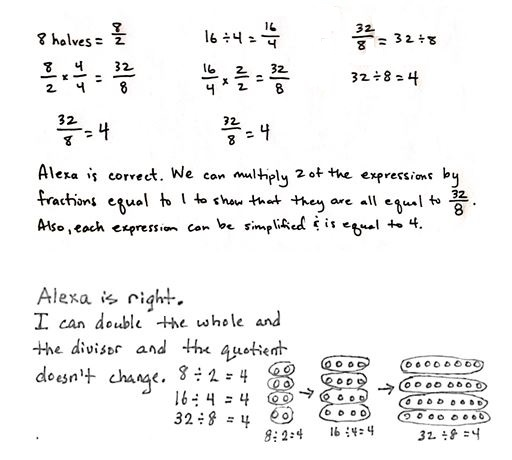 8 halves = 8/2 16 ÷ 4 = 16/4 32/8 = 32 ÷ 8
8/2 x 4/4 = 32/8 16/4 x 2/2 = 32/8 32 ÷ 8 = 4
32/8 = 4 32/8 = 4
Alexa is correct. We can multiply 2 of the expressions by
fractions equal to 1 to show that they are all equal to 32/8.
Also, each expression can be simplified & is equal to 4.
Alexa is right.
I can double the whole and
the divisor and the quotient
doesn't change. 8 ÷ 2 = 4
16 ÷ 4 = 4
32 ÷ 8 = 4
8 ÷ 2 = 4 16 ÷ 4 = 4 32 ÷ 8 = 4